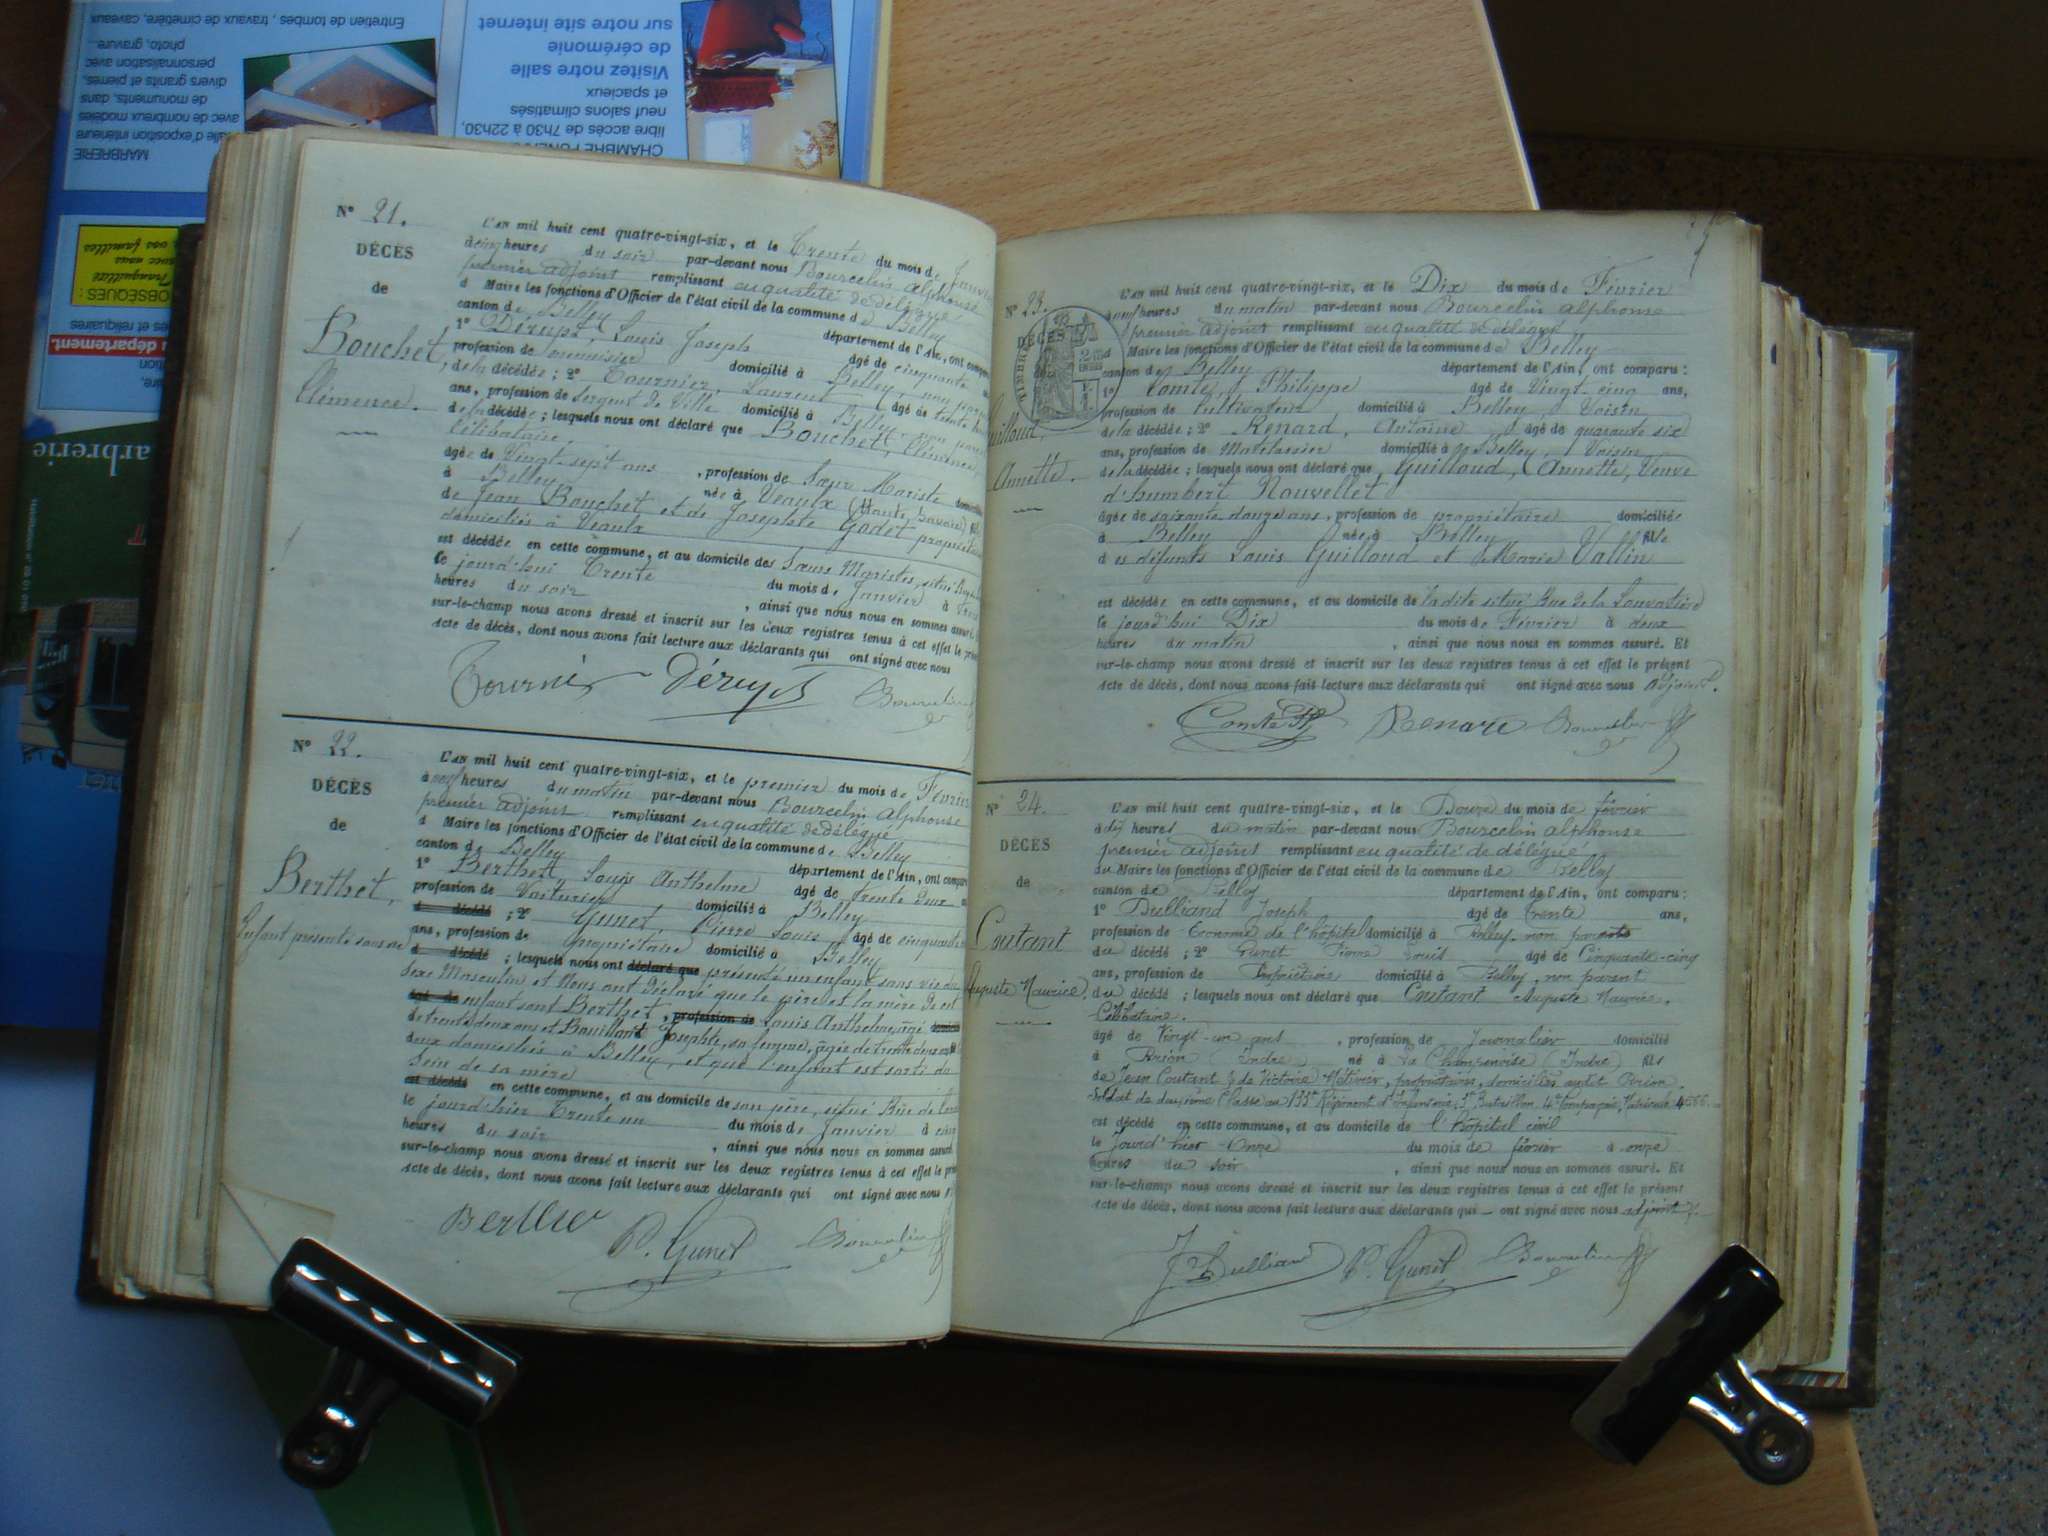 Entretien de tombes, travaux de cimetière, caveaux
MARBRERIE
salle d'exposition intérieure
avec de nombreux modèles
de monuments, dans
divers granits et pierres,
personnalisation avec
photo, gravure
libre accès de 7h30 à 22h30,
neuf salons climatisés
et spacieux
Visitez notre salle
de cérémonie
sur notre site internet
OBSÈQUES :
Tranquillité
avec nous
vos familles
département.
arbrerie
N° 21.
DÉCÈS
de
Bouchet,
Clémence.
L'AN mil huit cent quatre-vingt-six, et le Trente du mois de Janvier
à cinq heures du soir par-devant nous Bourcelin Alphonse
premier adjoint remplissant en qualité de délégué
d Maire les fonctions d'Officier de l'état civil de la commune de Belley
canton de Belley département de l'Ain, ont comparu
1° Dérupt, Louis Joseph âgé de cinquante
profession de menuisier domicilié à Belley, non parent
de la décédée ; 2° Tournier, Laurent âgé de trente
ans, profession de Sergent de Ville domicilié à Belley, non parent
de la décédée ; lesquels nous ont déclaré que Bouchet, Clémence,
Célibataire,
âgée de Vingt-sept ans, profession de Sœur Mariste
à Belley née à Veaulx (Haute Savoie)
de Jean Bouchet et de Josephte Godet propriétaires
domiciliés à Veaulx
est décédée en cette commune, et au domicile des Sœurs Maristes, situé
le jourd'hui Trente du mois de Janvier à
heures du soir, ainsi que nous nous en sommes assuré.
sur-le-champ nous avons dressé et inscrit sur les deux registres tenus à cet effet le
Acte de décès, dont nous avons fait lecture aux déclarants qui ont signé avec nous
Tournier Dérupt Bourcelin
N° 22.
DÉCÈS
de
Berthet,
Enfant présenté sans vie
L'AN mil huit cent quatre-vingt-six, et le premier du mois de Février
à neuf heures du matin par-devant nous Bourcelin Alphonse
premier adjoint remplissant en qualité de délégué
d Maire les fonctions d'Officier de l'état civil de la commune de Belley
canton de Belley département de l'Ain, ont comparu
1° Berthet Louis Anthelme âgé de trente deux
profession de Voiturier domicilié à Belley
d décédé ; 2° Gunet, Pierre Louis âgé de cinquante
ans, profession de propriétaire domicilié à Belley
d décédé ; lesquels nous ont déclaré que présenté un enfant sans vie du
sexe Masculin et Nous ont déclaré que le père et la mère de cet
âgé de enfant sont Berthet, profession de Louis Anthelme, âgé
de trente deux ans et Bouillant Josephte, sa femme, âgée de trente deux ans
deux domiciliés à Belley, et que l'enfant est sorti du
Sein de sa mère
est décédé en cette commune, et au domicile de son père, situé Rue de
le jourd'hier Trente un du mois de Janvier à
heures du soir, ainsi que nous nous en sommes assuré.
sur-le-champ nous avons dressé et inscrit sur les deux registres tenus à cet effet le
Acte de décès, dont nous avons fait lecture aux déclarants qui ont signé avec nous
Berthet P. Gunet Bourcelin
N° 23.
DÉCÈS
Guilloud,
Annette.
L'AN mil huit cent quatre-vingt-six, et le Dix du mois de Février
à neuf heures du matin par-devant nous Bourcelin Alphonse
premier adjoint remplissant en qualité de délégué
Maire les fonctions d'Officier de l'état civil de la commune de Belley
canton de Belley département de l'Ain, ont comparu :
1° Comte, Philippe âgé de Vingt cinq ans,
profession de Cultivateur domicilié à Belley, Voisin
de la décédée ; 2° Renard, Antoine, âgé de quarante six
ans, profession de Matelassier domicilié à Belley, Voisin
de la décédée ; lesquels nous ont déclaré que Guilloud, Annette, Veuve
d'humbert Nouvellet
âgée de soixante douze ans, profession de propriétaire domiciliée
à Belley née à Belley fille
des défunts Louis Guilloud et Marie Vallin
est décédée en cette commune, et au domicile de ladite situé Rue de la
le jourd'hui Dix du mois de Février à deux
heures du matin, ainsi que nous nous en sommes assuré. Et
sur-le-champ nous avons dressé et inscrit sur les deux registres tenus à cet effet le présent
Acte de décès, dont nous avons fait lecture aux déclarants qui ont signé avec nous adjoint.
Comte Ph Renard Bourcelin
N° 24.
DÉCÈS
de
Coutant
Auguste Maurice.
L'AN mil huit cent quatre-vingt-six, et le Douze du mois de février
à dix heures du matin par-devant nous Bourcelin Alphonse
premier adjoint remplissant en qualité de délégué
du Maire les fonctions d'Officier de l'état civil de la commune de Belley
canton de Belley département de l'Ain, ont comparu :
1° Dulliand Joseph âgé de trente ans,
profession de Econome de l'hôpital domicilié à Belley, non parent
du décédé ; 2° Gunet Pierre Louis âgé de Cinquante-cinq
ans, profession de Propriétaire domicilié à Belley, non parent
du décédé ; lesquels nous ont déclaré que Coutant Auguste Maurice,
Célibataire.
âgé de Vingt-un ans, profession de Journalier domicilié
à Brion (Indre) né à La Champenoise (Indre) fils
de Jean Coutant & de Victoire Métivier, propriétaires, domiciliés audit Brion.
Soldat de deuxième Classe au 133e Régiment d'Infanterie, Bataillon 4e Compagnie, Matricule
est décédé en cette commune, et au domicile de l'hôpital civil
le jourd'hier Onze du mois de février à onze
heures du soir, ainsi que nous nous en sommes assuré. Et
sur-le-champ nous avons dressé et inscrit sur les deux registres tenus à cet effet le présent
Acte de décès, dont nous avons fait lecture aux déclarants qui ont signé avec nous adjoint.
J. Dulliand P. Gunet Bourcelin